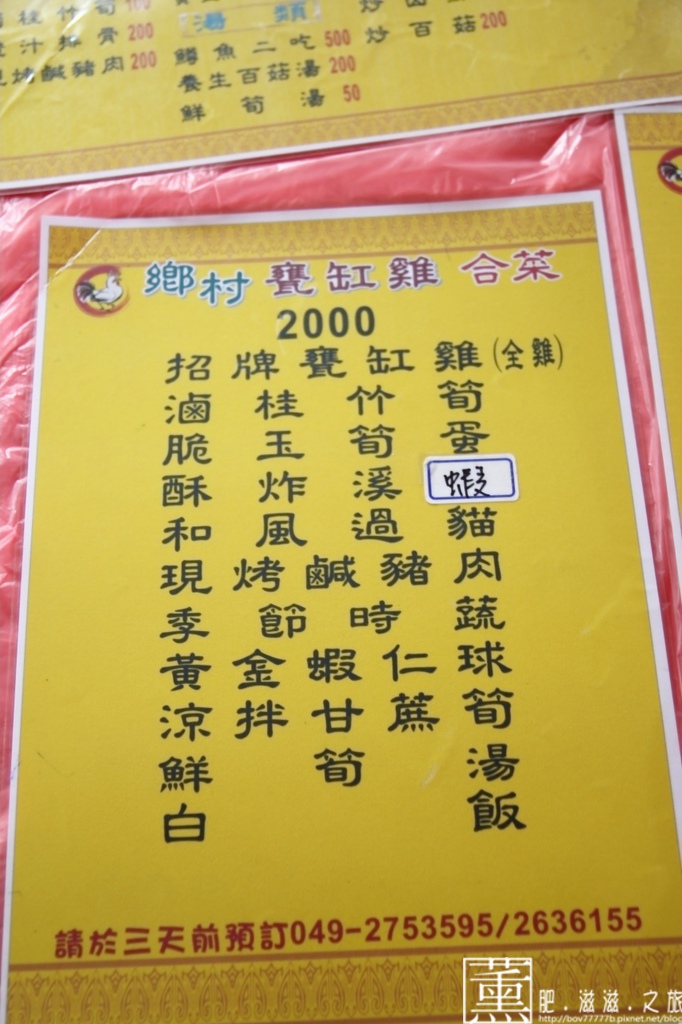 桂竹筍
汁排骨 200
烤鹹豬肉 200
湯類
鱒魚二吃 500
養生百菇湯 200
鮮筍湯 50
炒百菇 200
鄉村甕缸雞 合菜
2000
招牌甕缸雞(全雞)
滷桂竹筍
脆玉筍蛋
酥炸溪蝦
和風過貓
現烤鹹豬肉
季節時蔬
黃金蝦仁球
涼拌甘蔗筍
鮮筍湯
白飯
請於三天前預訂049-2753595/2636155
薰 肥.滋滋.之旅
http://bov77777b.pixnet.net/blog